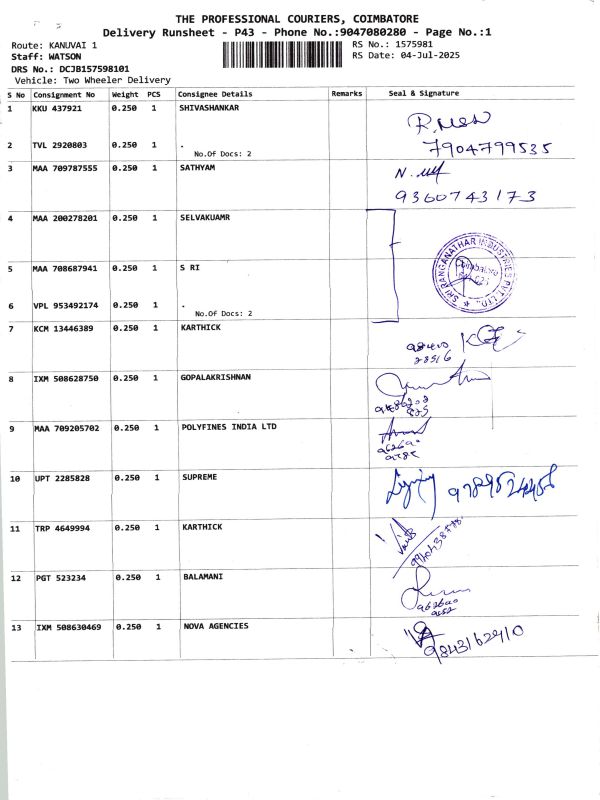 THE PROFESSIONAL COURIERS, COIMBATORE
Delivery Runsheet - P43 - Phone No.:9047080280 - Page No.:1
Route: KANUVAI 1 RS No.: 1575981
Staff: WATSON RS Date: 04-Jul-2025
DRS No.: DCJB157598101
Vehicle: Two Wheeler Delivery
S No Consignment No Weight PCS Consignee Details Remarks Seal & Signature
1 KKU 437921 0.250 1 SHIVASHANKAR
2 TVL 2920803 0.250 1 . 7904799535
No.Of Docs: 2
3 MAA 709787555 0.250 1 SATHYAM
9360743173
4 MAA 200278201 0.250 1 SELVAKUAMR
SRI RANGANATHAR INDUSTRIES PVT. LTD.,
Coimbatore
5 MAA 708687941 0.250 1 S RI
6 VPL 953492174 0.250 1 .
No.Of Docs: 2
7 KCM 13446389 0.250 1 KARTHICK
8 IXM 508628750 0.250 1 GOPALAKRISHNAN
9 MAA 709205702 0.250 1 POLYFINES INDIA LTD
10 UPT 2285828 0.250 1 SUPREME
11 TRP 4649994 0.250 1 KARTHICK
12 PGT 523234 0.250 1 BALAMANI
13 IXM 508630469 0.250 1 NOVA AGENCIES
9843162910